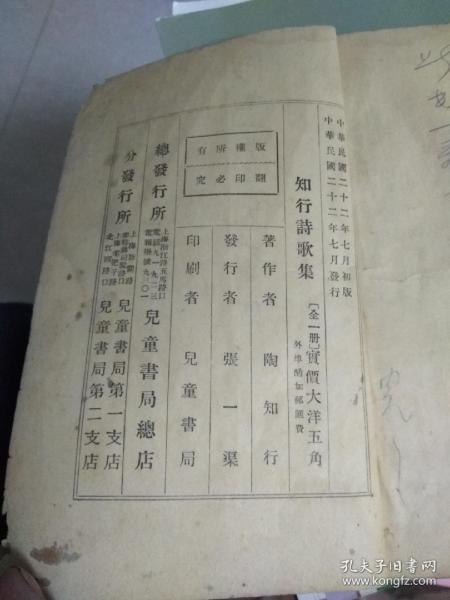 中華民國二十二年七月初版
中華民國二十二年七月發行
知行詩歌集
[全一册]實價大洋五角
外埠酌加郵匯費
著作者 陶知行
發行者 張一渠
印刷者 兒童書局
版權所有
翻印必究
總發行所
上海浙江路五馬路口
電話九一九二三
兒童書局總店
分發行所
兒童書局第一支店
兒童書局第二支店
孔夫子旧书网
www.kongfz.com